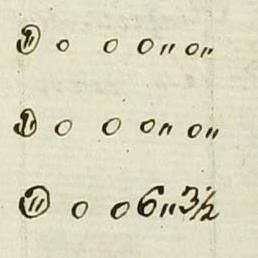 11 0 0 0 " 0 "
1 0 0 0 " 0 "
11 0 0 6 " 3½